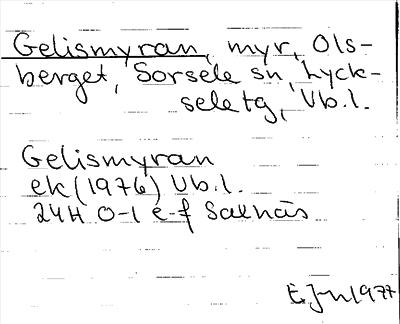 Gelismyran, myr, Ols-
berget, Sorsele sn, Lyck-
sele tg, Vb.l.
Gelismyran
ek (1976) Vb.l.
24H 0-1 e-f Salnäs
E.J-n 1977